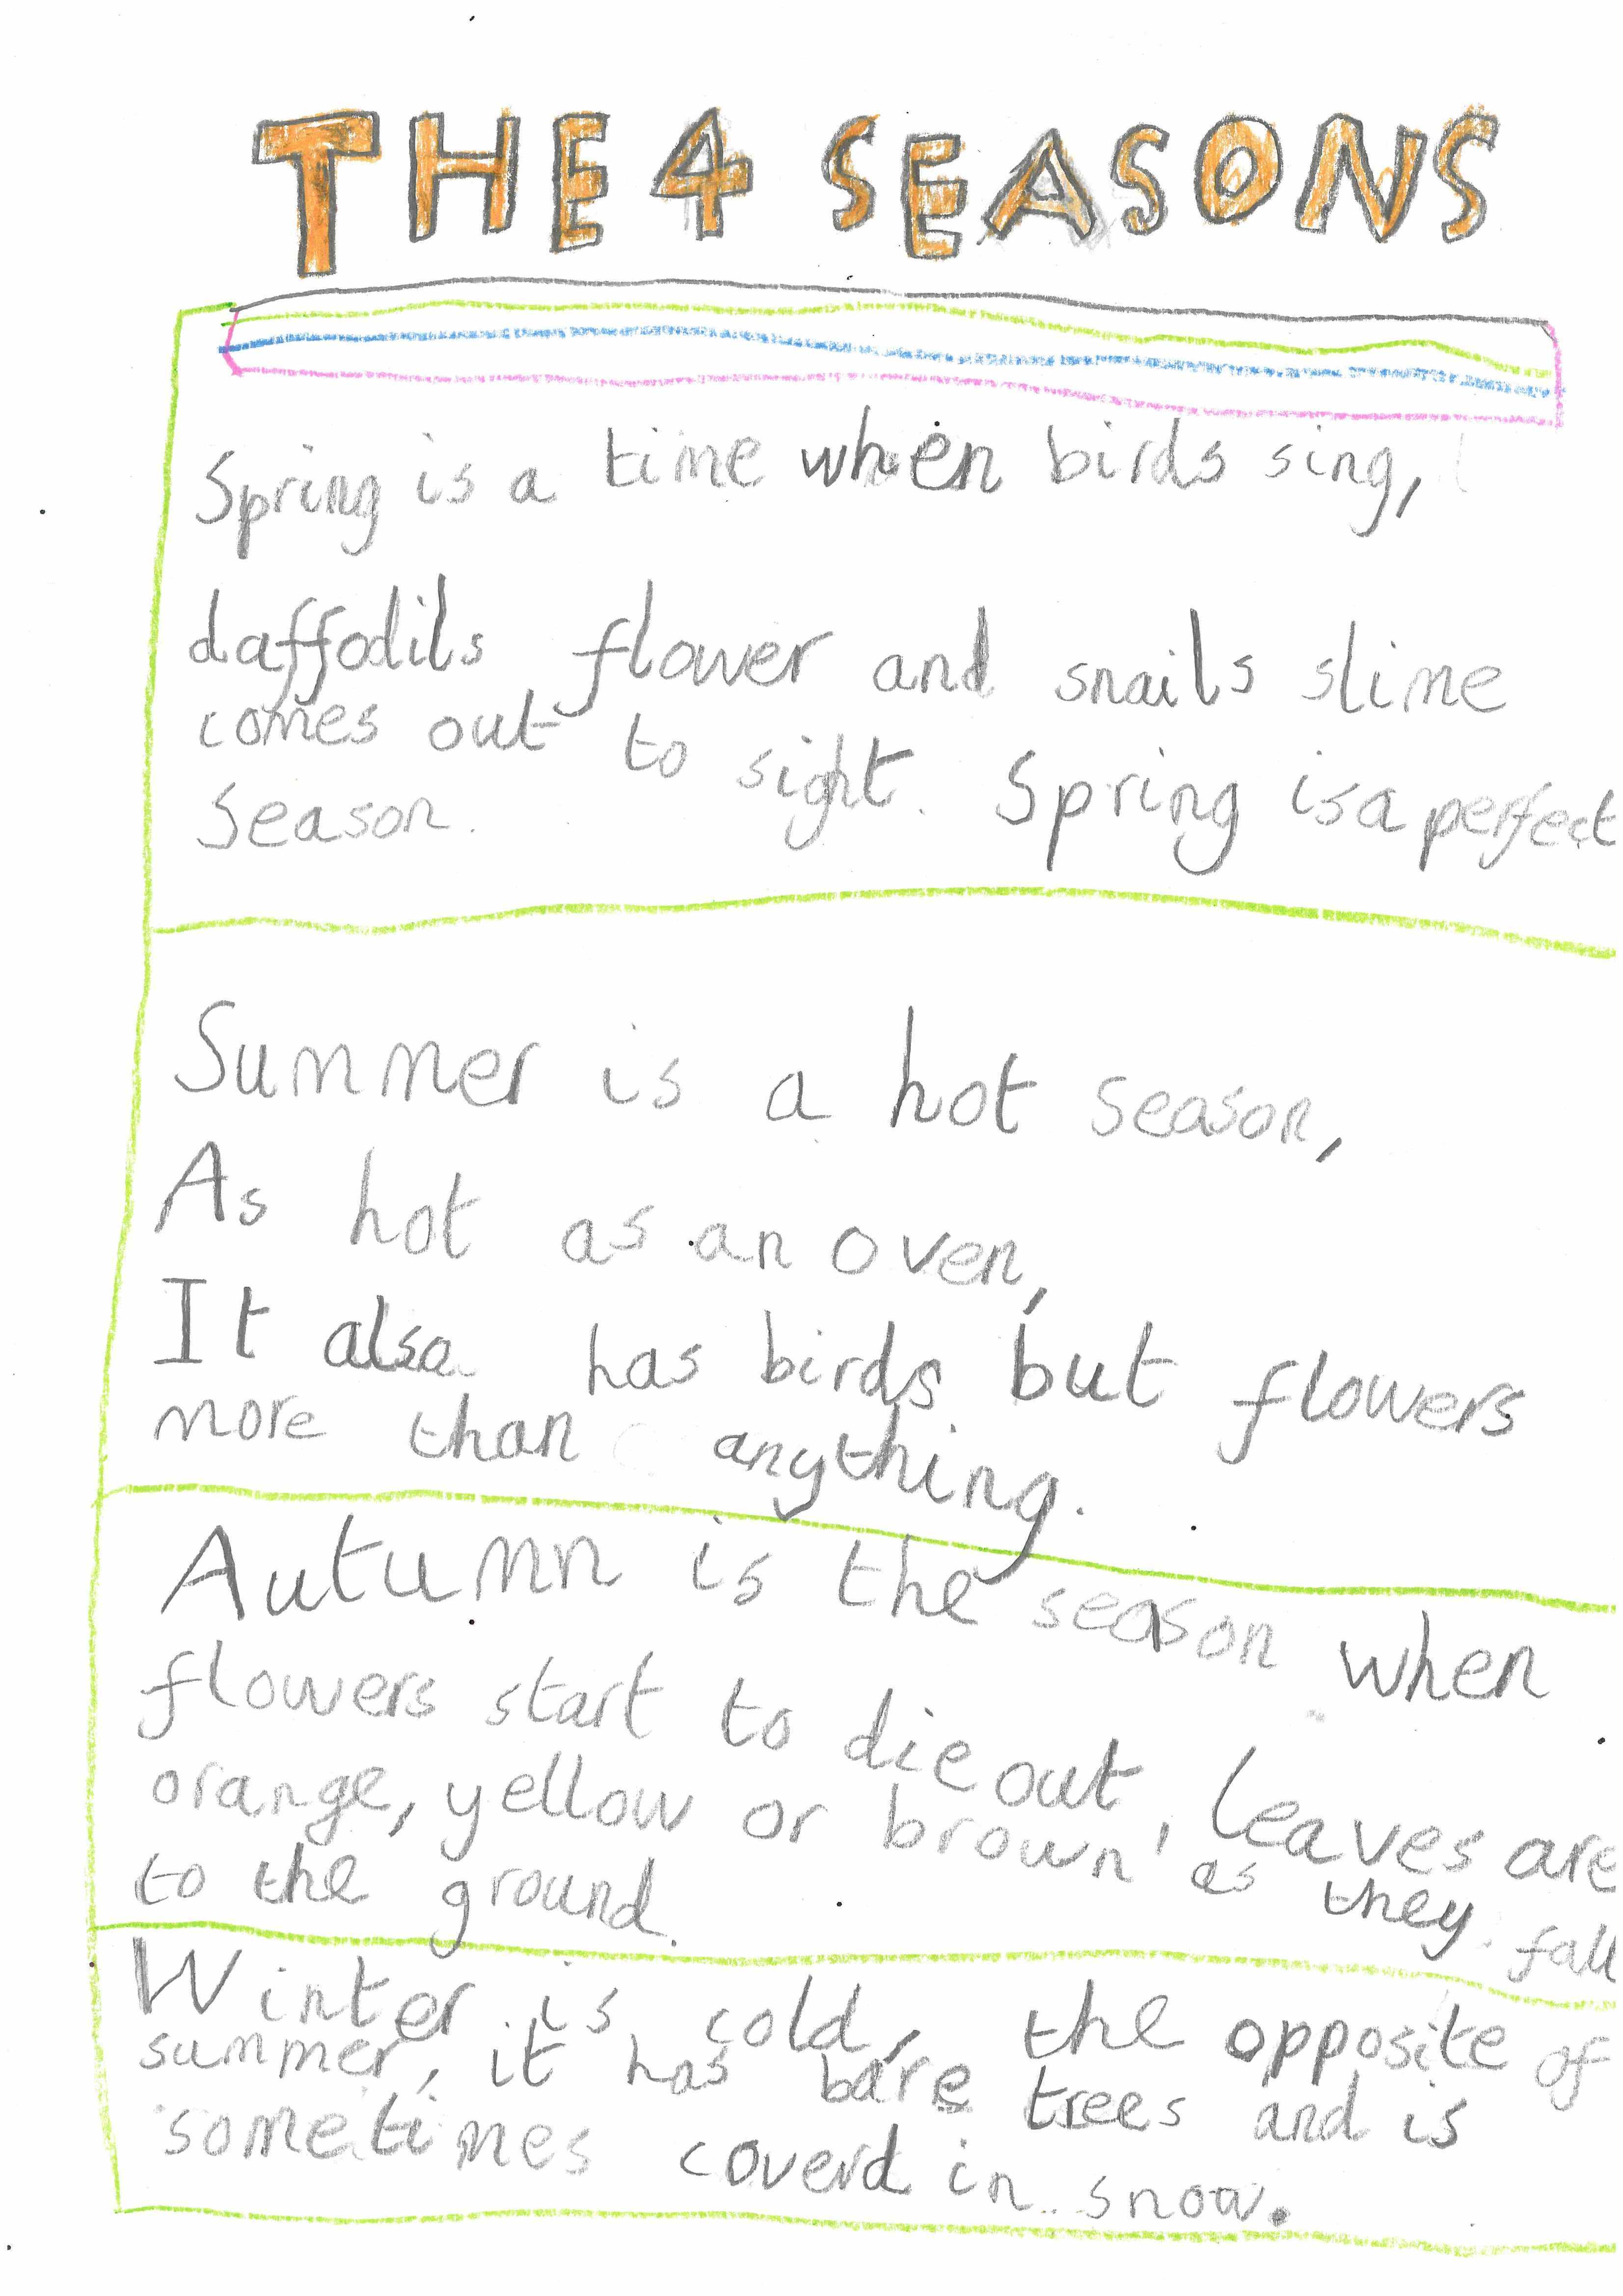 THE 4 SEASONS
Spring is a time when birds sing,
daffodils flower and snails slime
comes out to sight. Spring is a perfect
season.
Summer is a hot season,
As hot as an oven,
It also has birds but flowers
more than anything.
Autumn is the season when
flowers start to die out, leaves are
orange, yellow or brown, as they fall
to the ground.
Winter is cold, the opposite of
summer, it has bare trees and is
sometimes coverd in snow.